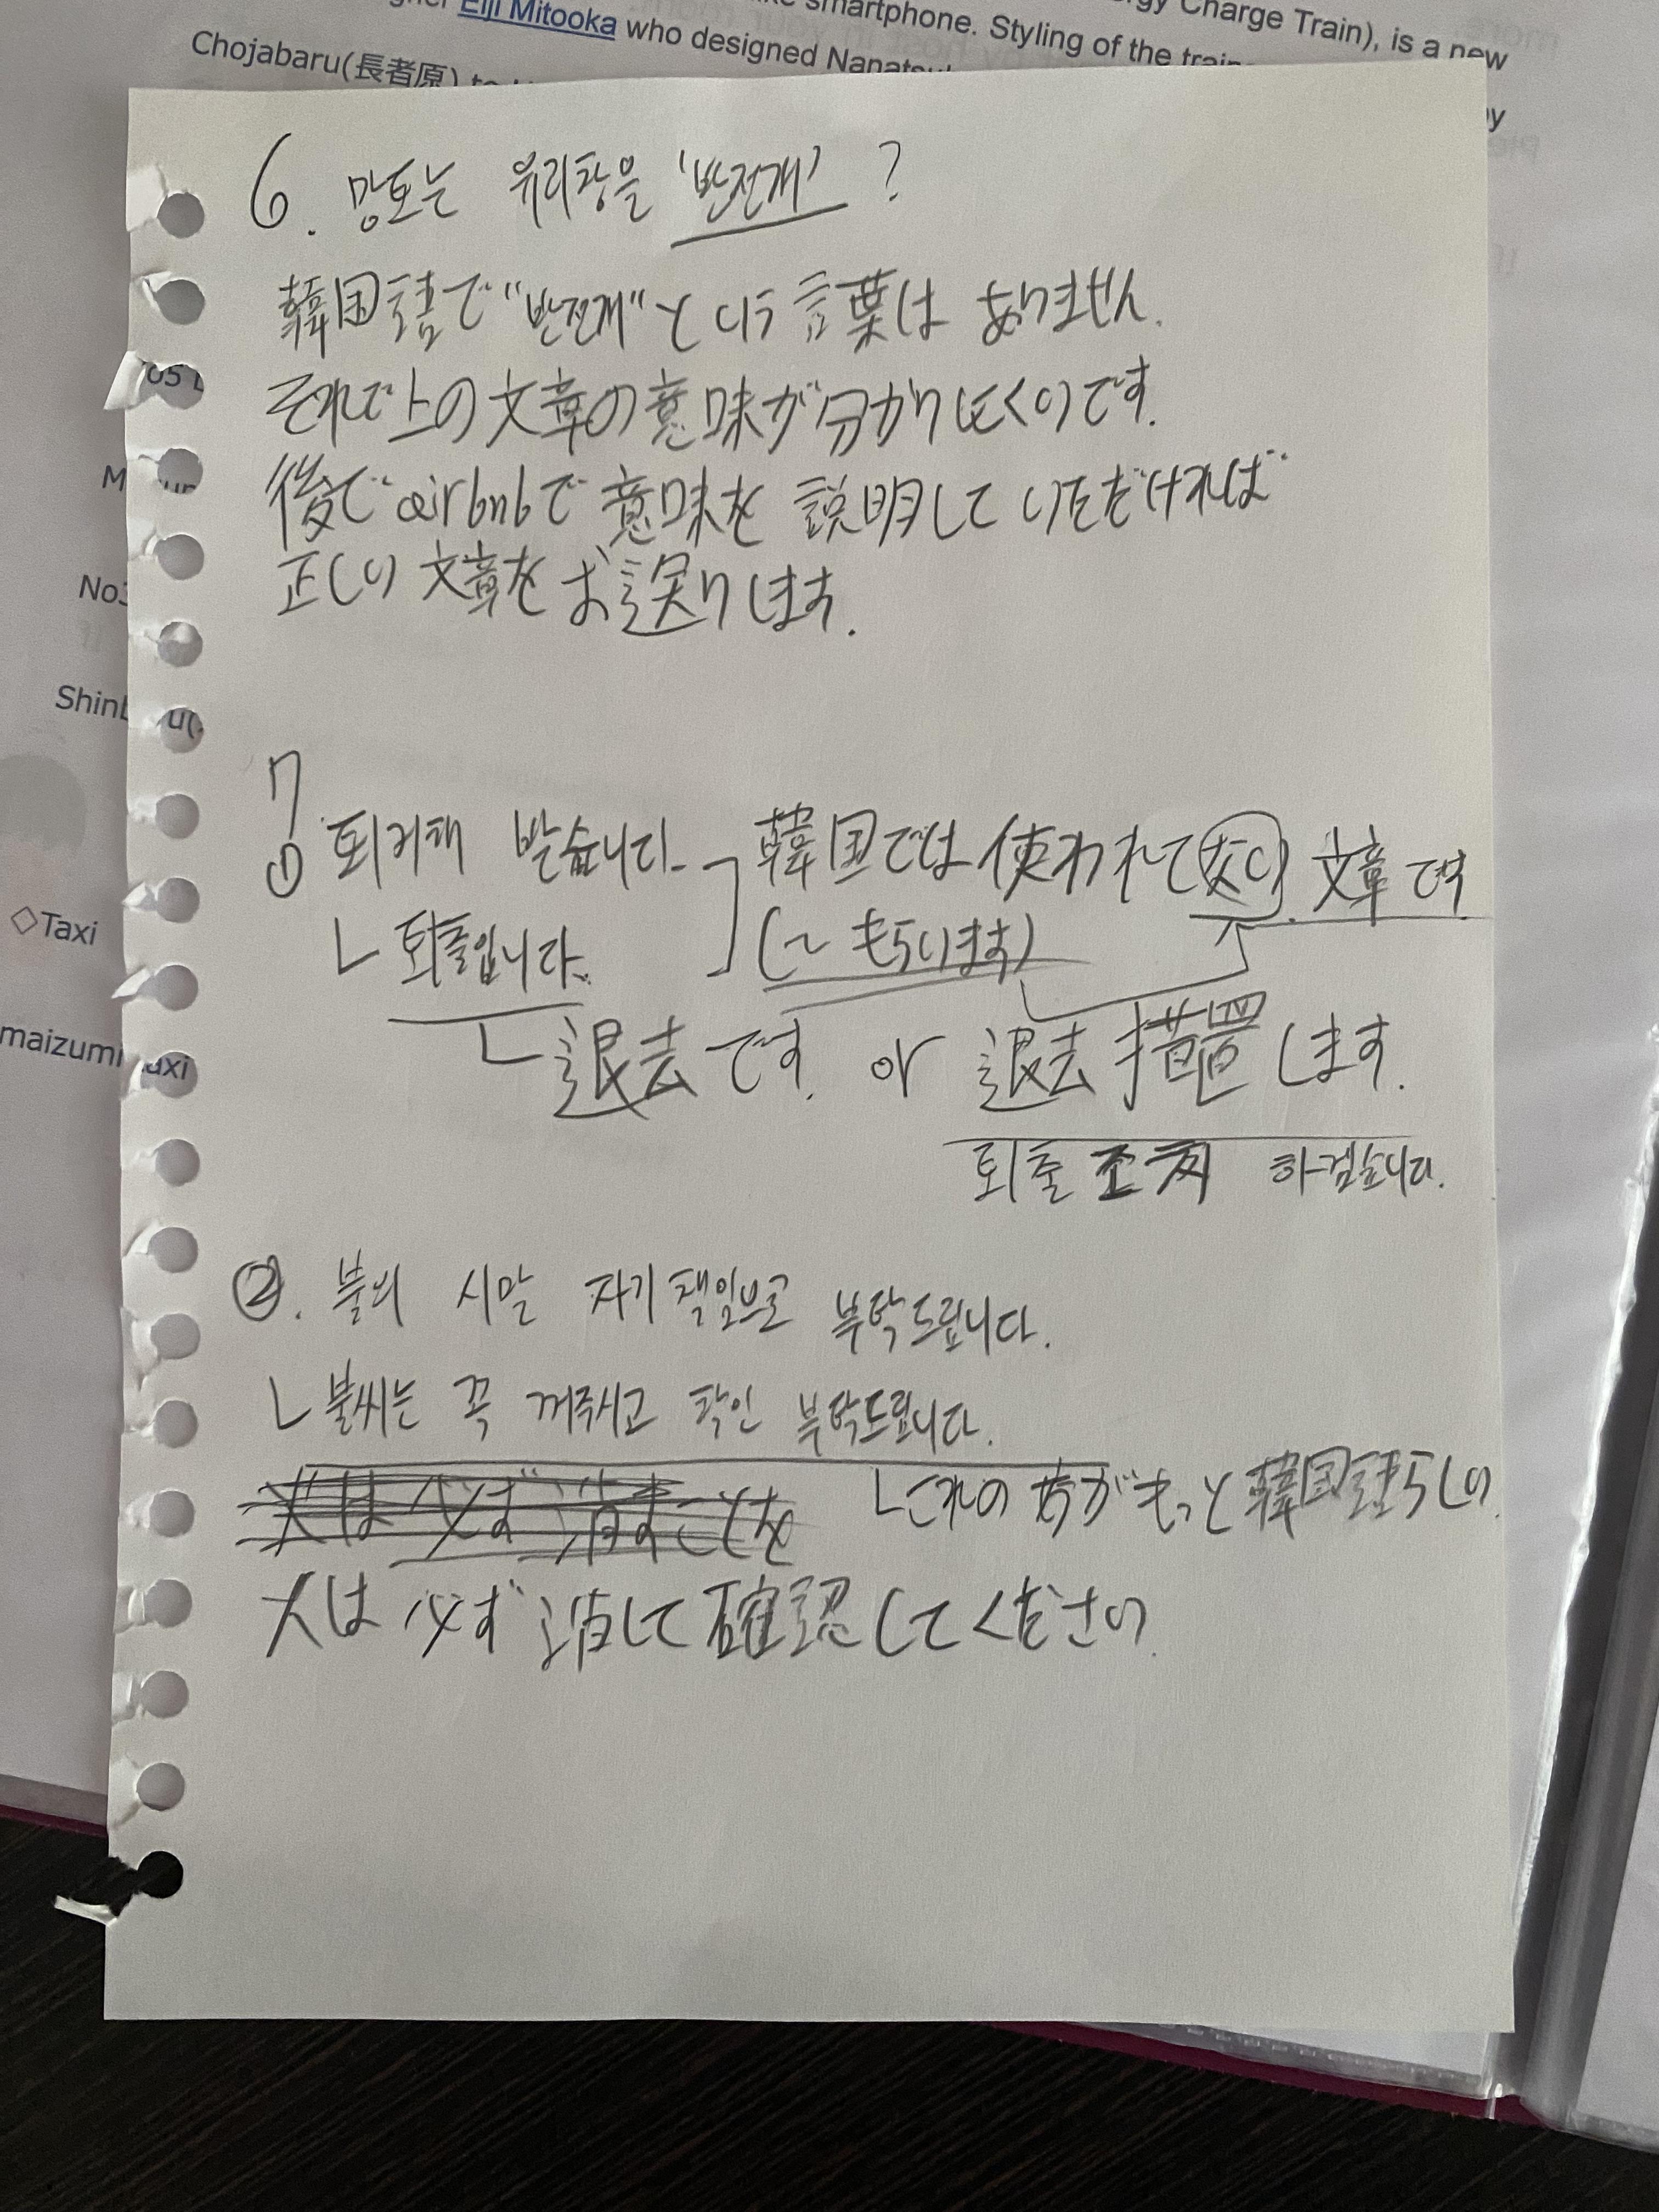 Eiji Mitooka who designed Nanatsu
smartphone. Styling of the train
Charge Train), is a new
Chojabaru(長者原) to
6. 망호는 유리창을 '반전개' ?
韓国語で "반전개" という言葉は ありません.
それで上の文章の意味が分かりにくいです.
後で airbnbで 意味を 説明して いただければ
正しい 文章を お送りします.
No3
◇Taxi
maizumi Taxi
7
① 퇴거해 받습니다.
韓国では 使われてない. 文章です
ㄴ 퇴출입니다.
(~ もらいます)
ㄴ 退去です. or 退去 措置します.
퇴출 조치 하겠습니다.
②. 불의 시말 자기 책임으로 부탁드립니다.
ㄴ 불씨는 꼭 꺼주시고 확인 부탁드립니다.
火は 必ず 消すことを
ㄴこれの 方がもっと 韓国語らしい.
火は 必ず 消して 確認してください.